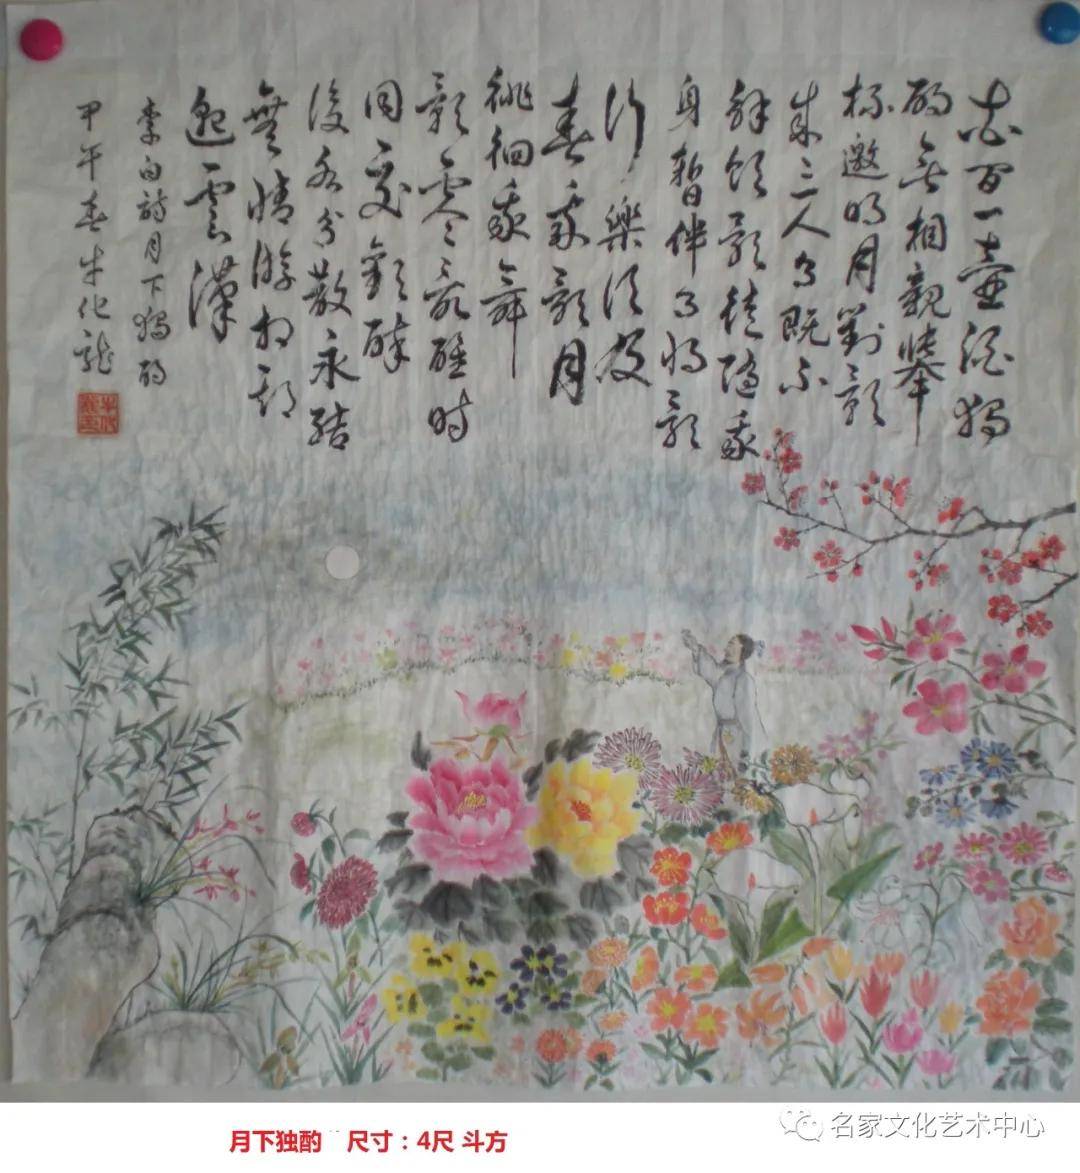 花间一壺酒獨
酌無相親舉
杯邀明月對影
成三人月既不
解飲影徒隨我
身暫伴月將影
行樂須及
春我歌月
徘徊我舞
影零亂醒时
同交歡醉
後各分散永結
無情游相期
邈雲漢
李白詩月下獨酌
甲午春牛化龍
月下独酌 尺寸：4尺 斗方
名家文化艺术中心